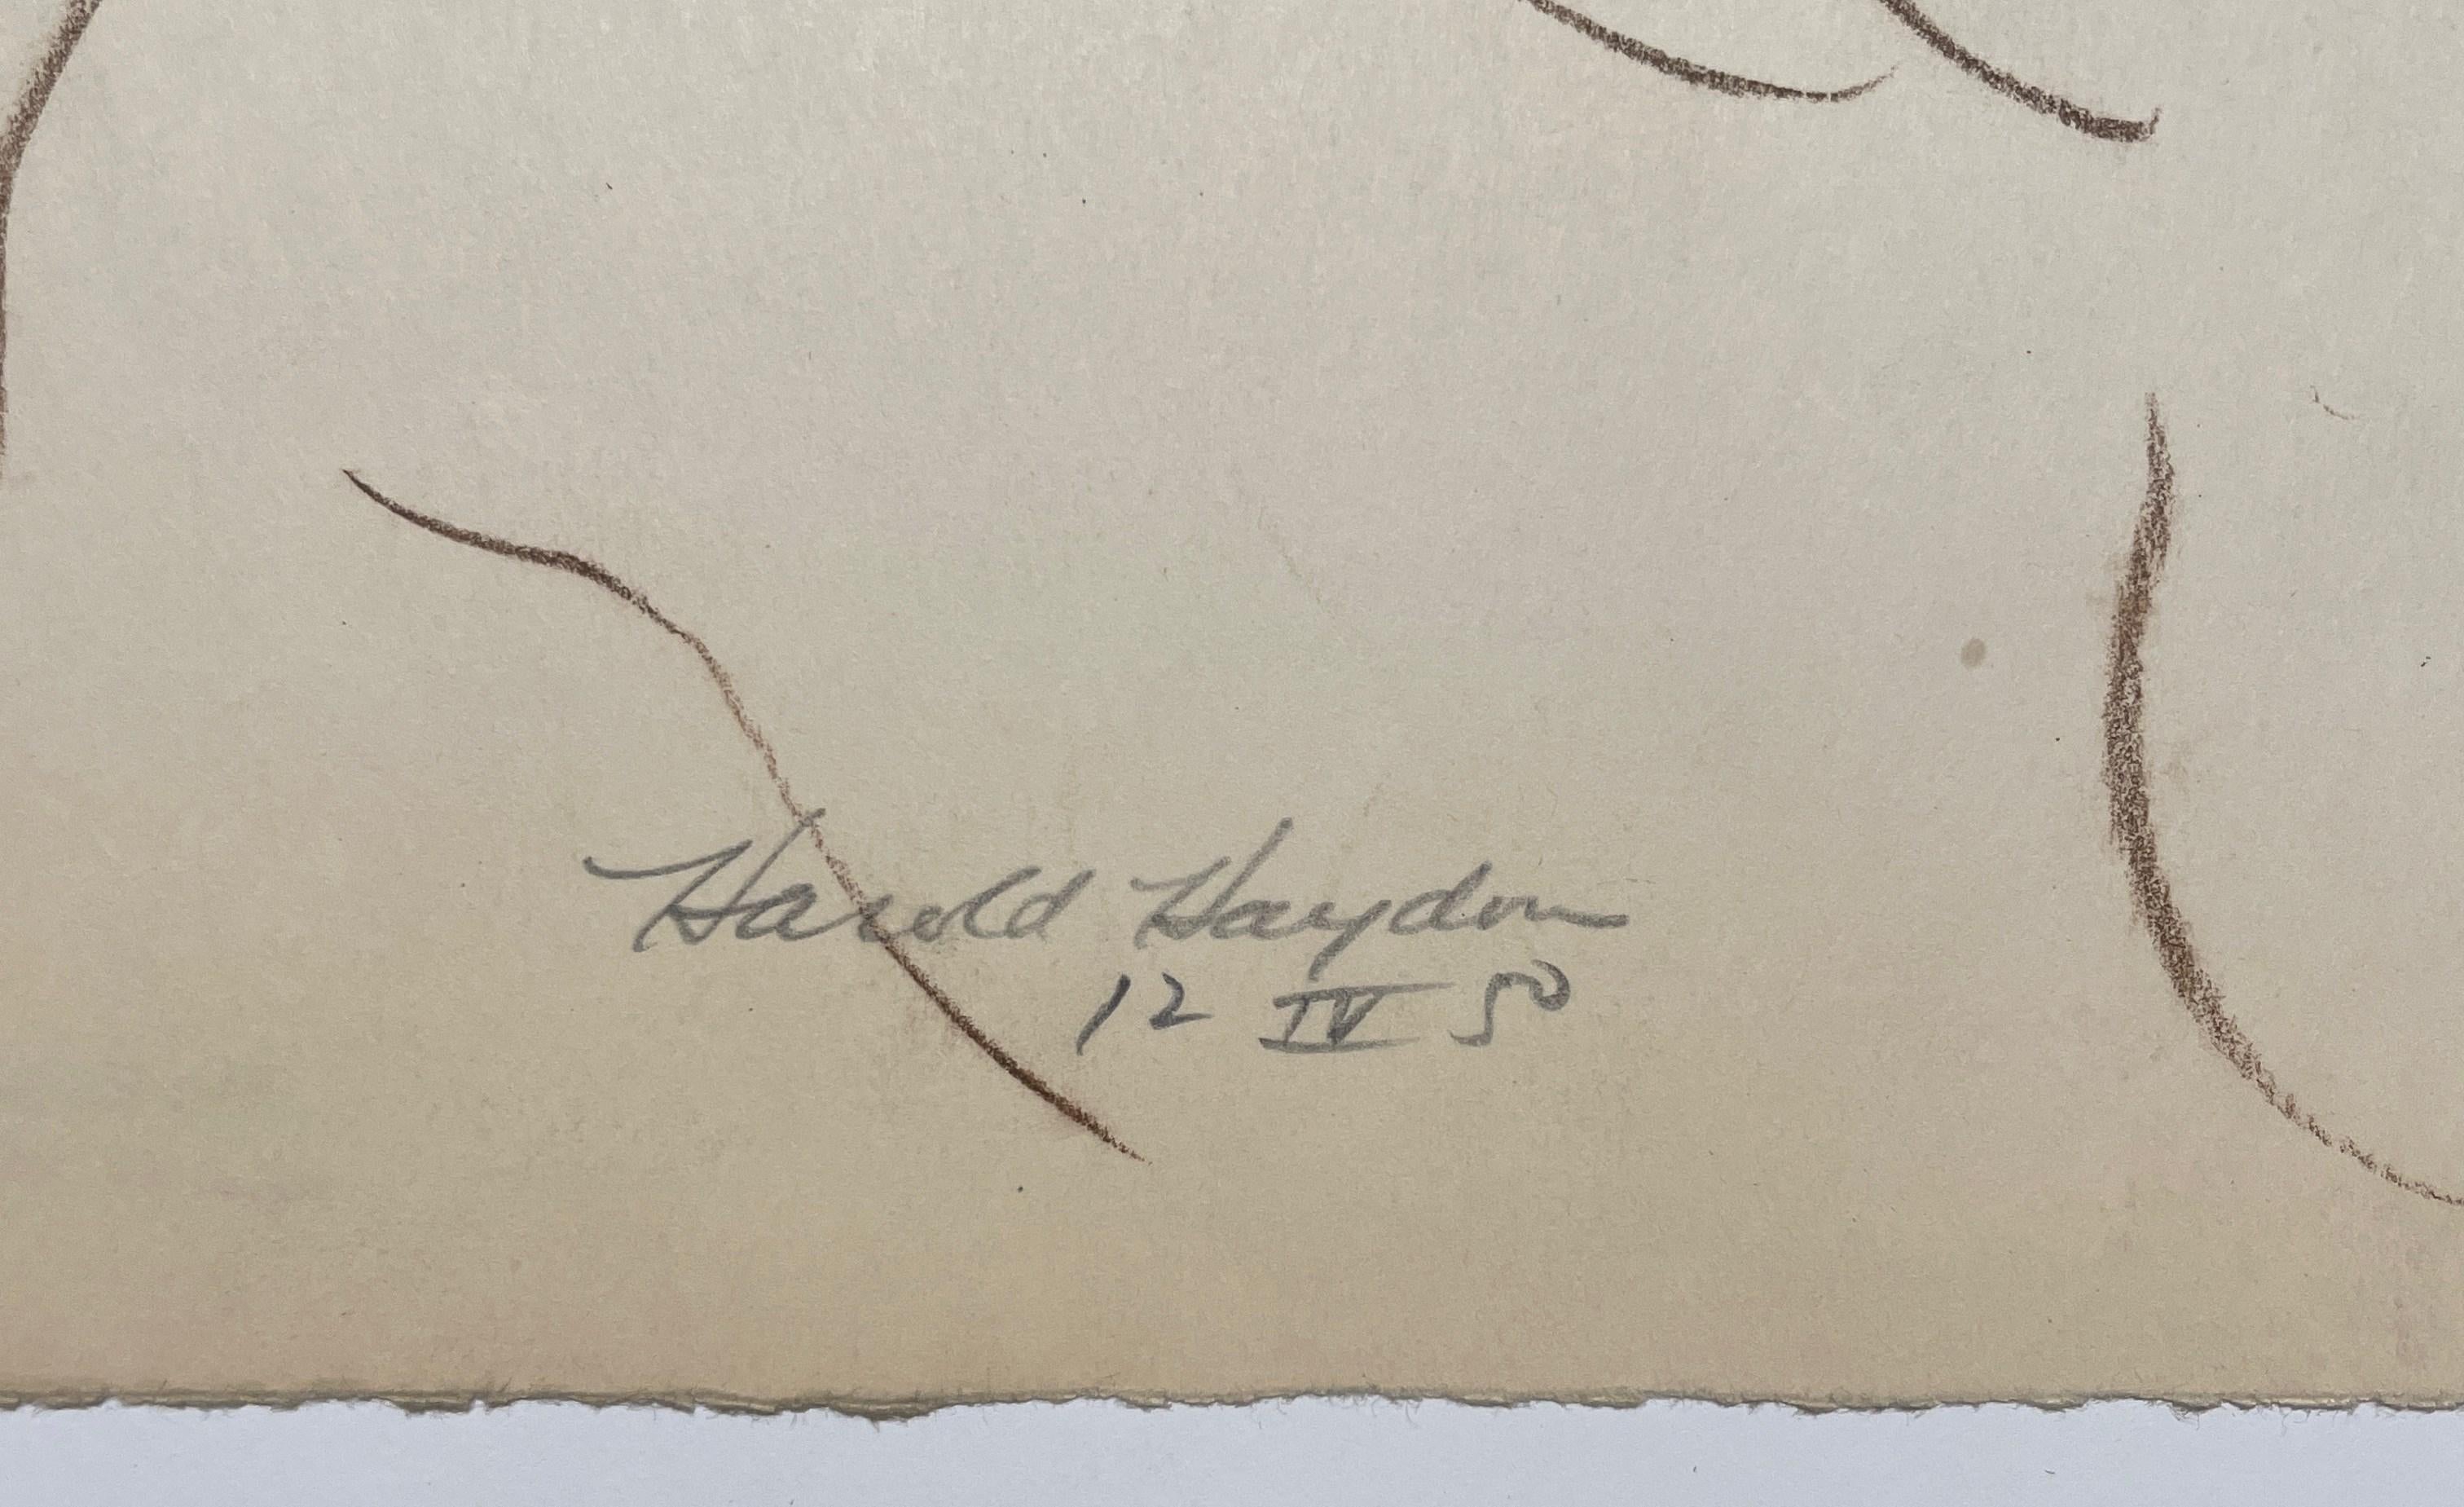 Harold Haydon
12 IV 50